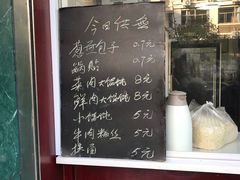 今日供应
葱油包子 0.7元
锅贴 0.7元
菜肉大馄饨 8元
鲜肉大馄饨 8元
小馄饨 5元
牛肉粉丝 5元
5元